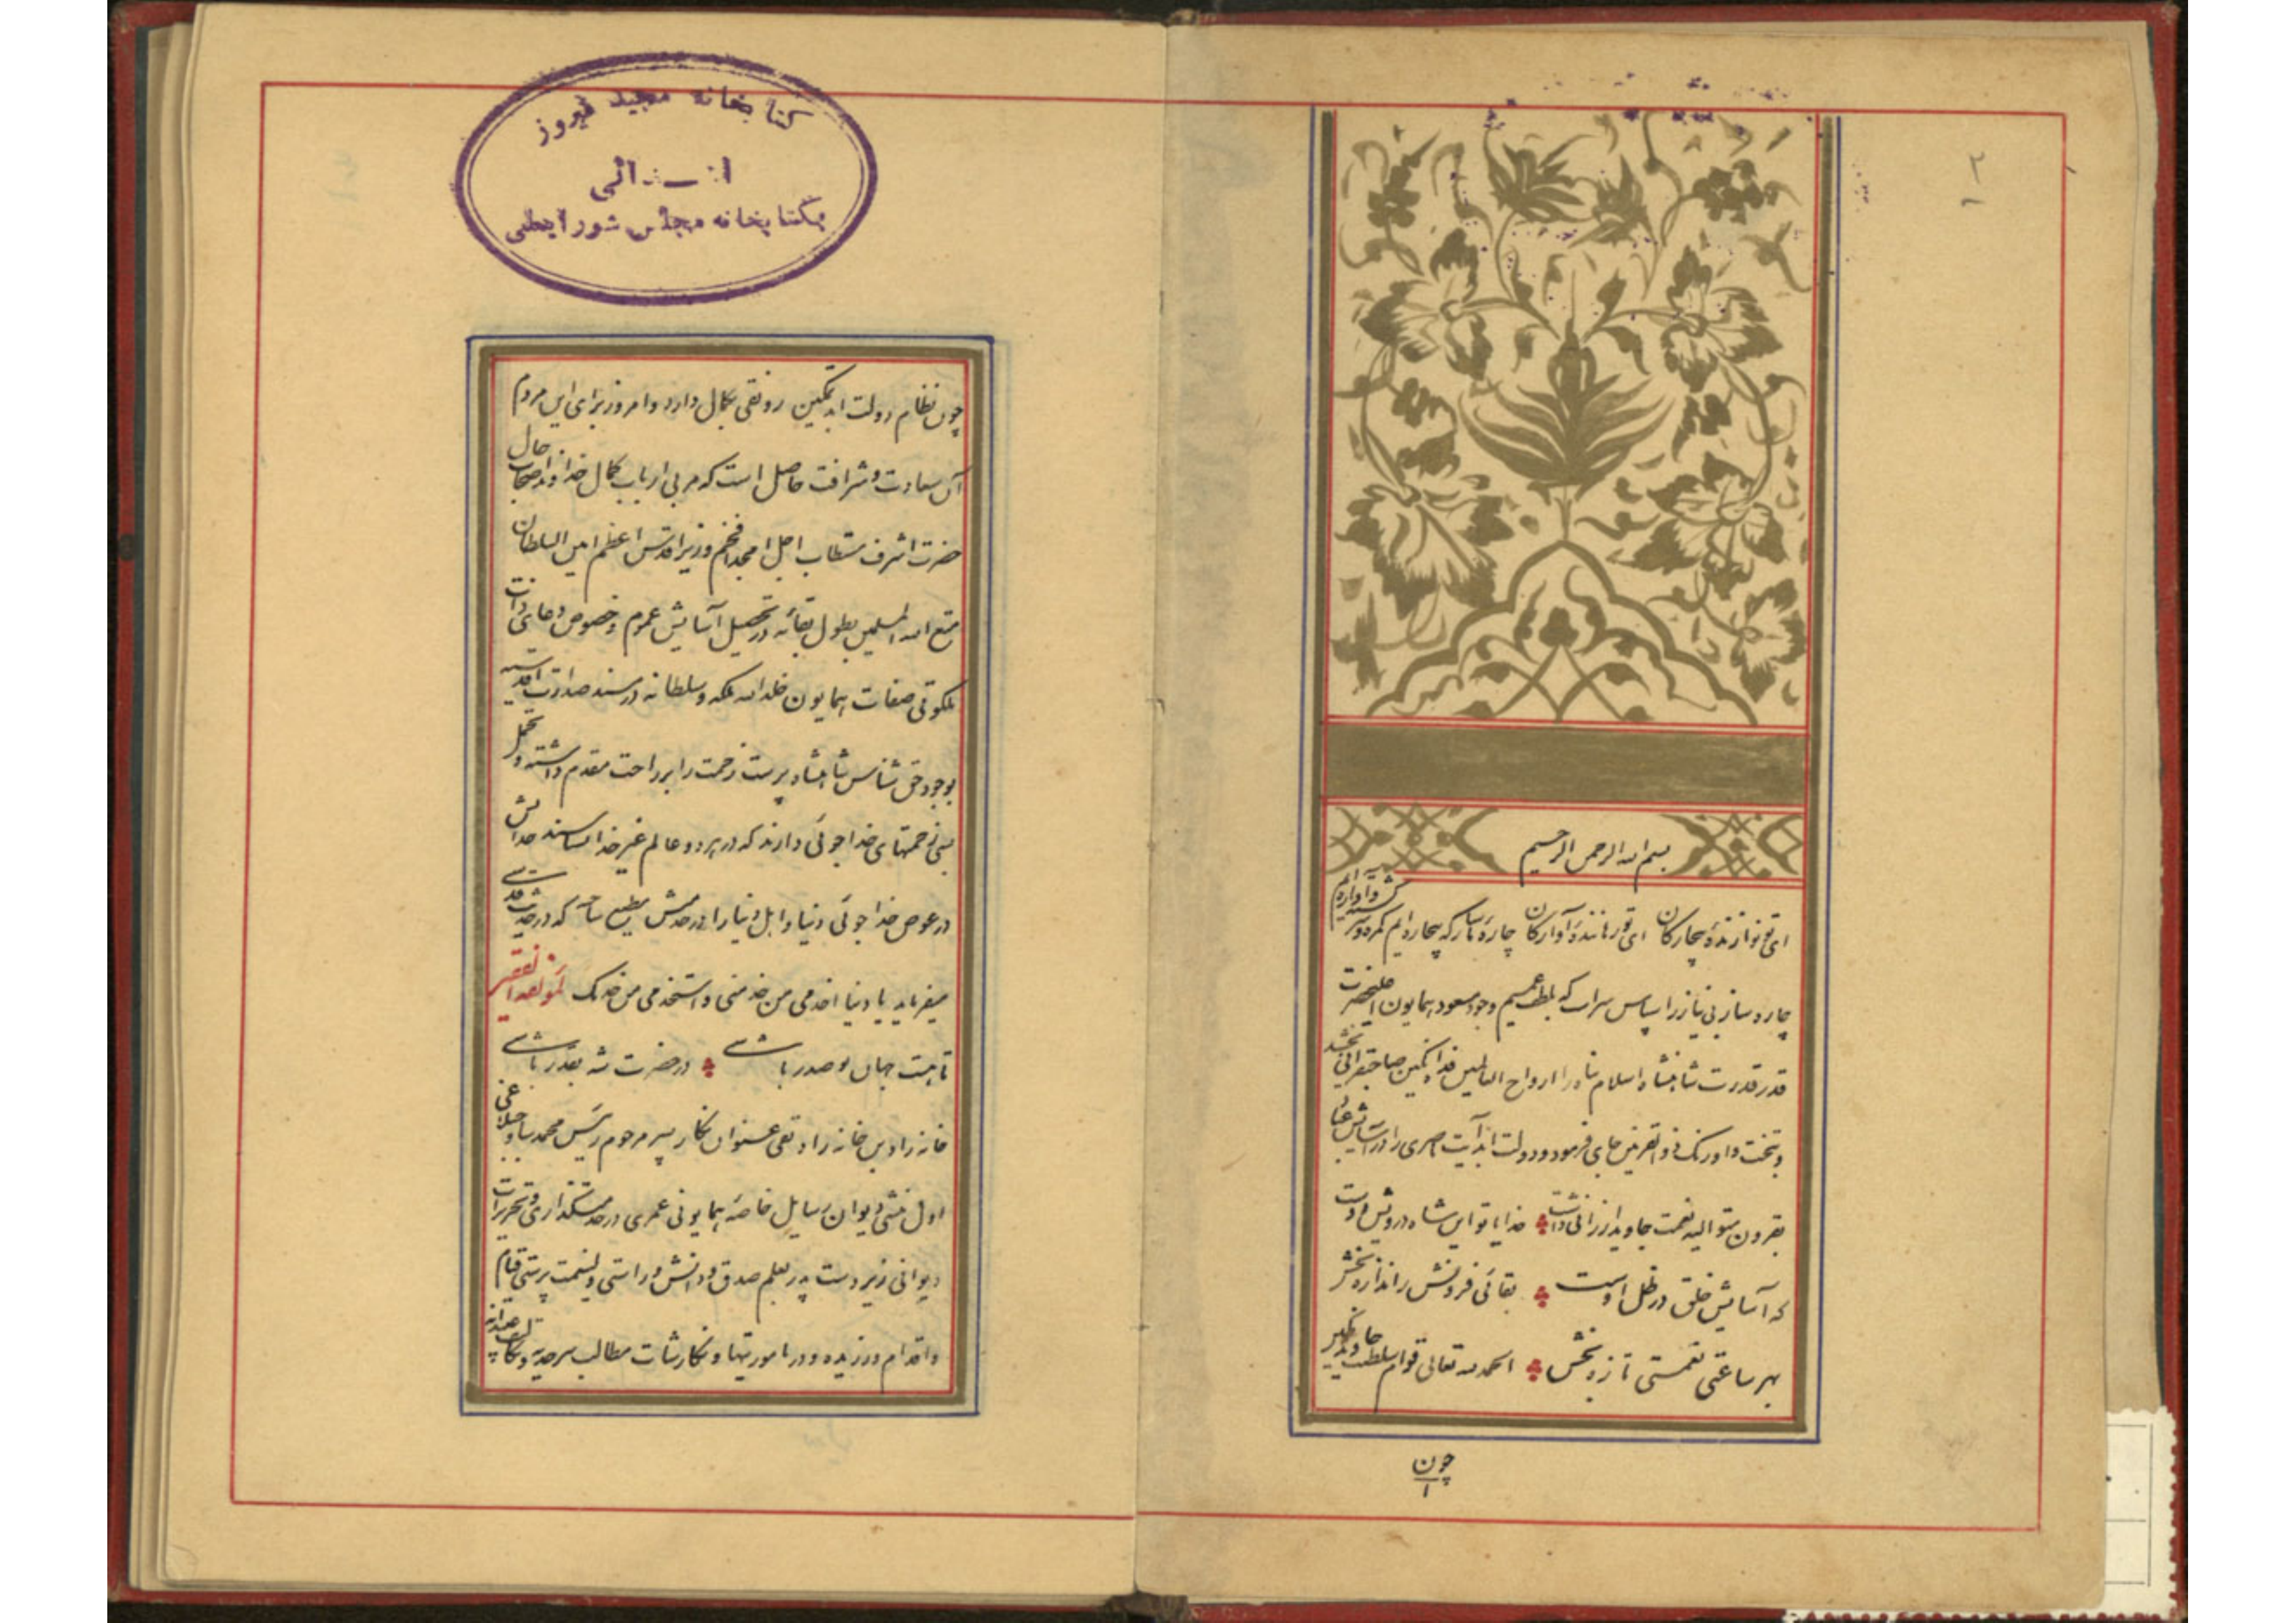 ۲
بسم الله الرحمن الرحیم
ای تو نوازندهٔ بیچارگان ای تو رهانندهٔ آوارگان چاره ما ساز که بیچاره ایم گمره و سرگشته و آواره ایم
چاره ساز بی نیاز را سپاس سزاست که بلطف عمیم وجود مسعود همایون اعلیحضرت
قدر قدرت شاهنشاه اسلام پناه را ارواح العالمین فداه تمکین صاحبقرانی بخشید
و بتخت و اورنگ ذو القرنین جای فرمود و دولت ابد آیت
بقرون متوالیه نعمت جاوید ارزانی داشت خدایا تو این شاه درویش دوست
که آسایش خلق در ظل اوست بقائی فزونش ز اندازه بخش
بهر ساعتی نعمتی تازه بخش الحمد لله تعالی قوام سلطنت جاوید
چون
۱
کتابخانه مجید فیروز
اهدائی
بکتابخانه مجلس شورایملی
چون نظام دولت ابد تمکین رونقی بکمال دارد و امروز برای این مردم
آن سعادت و شرافت حاصل است که مربی ارباب کمال خداوند اصحاب حال
حضرت اشرف مستطاب اجل امجد افخم وزیر اقدس اعظم امین السلطان
متع الله المسلمین بطول بقائه در تحصیل آسایش عموم و خصوص دعای ذات
ملکوتی صفات همایون خلد الله ملکه و سلطانه در مسند صدارت
بوجود حق شناس شاهنشاه پرست زحمت را بر راحت مقدم داشته و تحمل
زحمتهای خدا جوئی دارند که در هر دو عالم غیر خدا
در عوض خدا جوئی دنیا و اهل دنیا را در خدمتش مطیع ساخته که در حدیث قدسی
میفرماید یا دنیا اخدمی من خدمنی و استخدمی من خدمک لمؤلفه الفقیر
تا هست جهان تو صدر باشی در حضرت شه بقدر باشی
خانه زاد بن خانه زاد تقی عنوان نگار پسر مرحوم رئیس محمد
اول منشی دیوان رسایل خاصه همایونی عمری در خدمتگذاری و تحریرات
دیوانی زیر دست پدر بعلم صدق و دانش و راستی ولینعمت پرستی قیام
و اقدام ورزیده و در ماموریتها و نگارشات مطالب سرحدیه